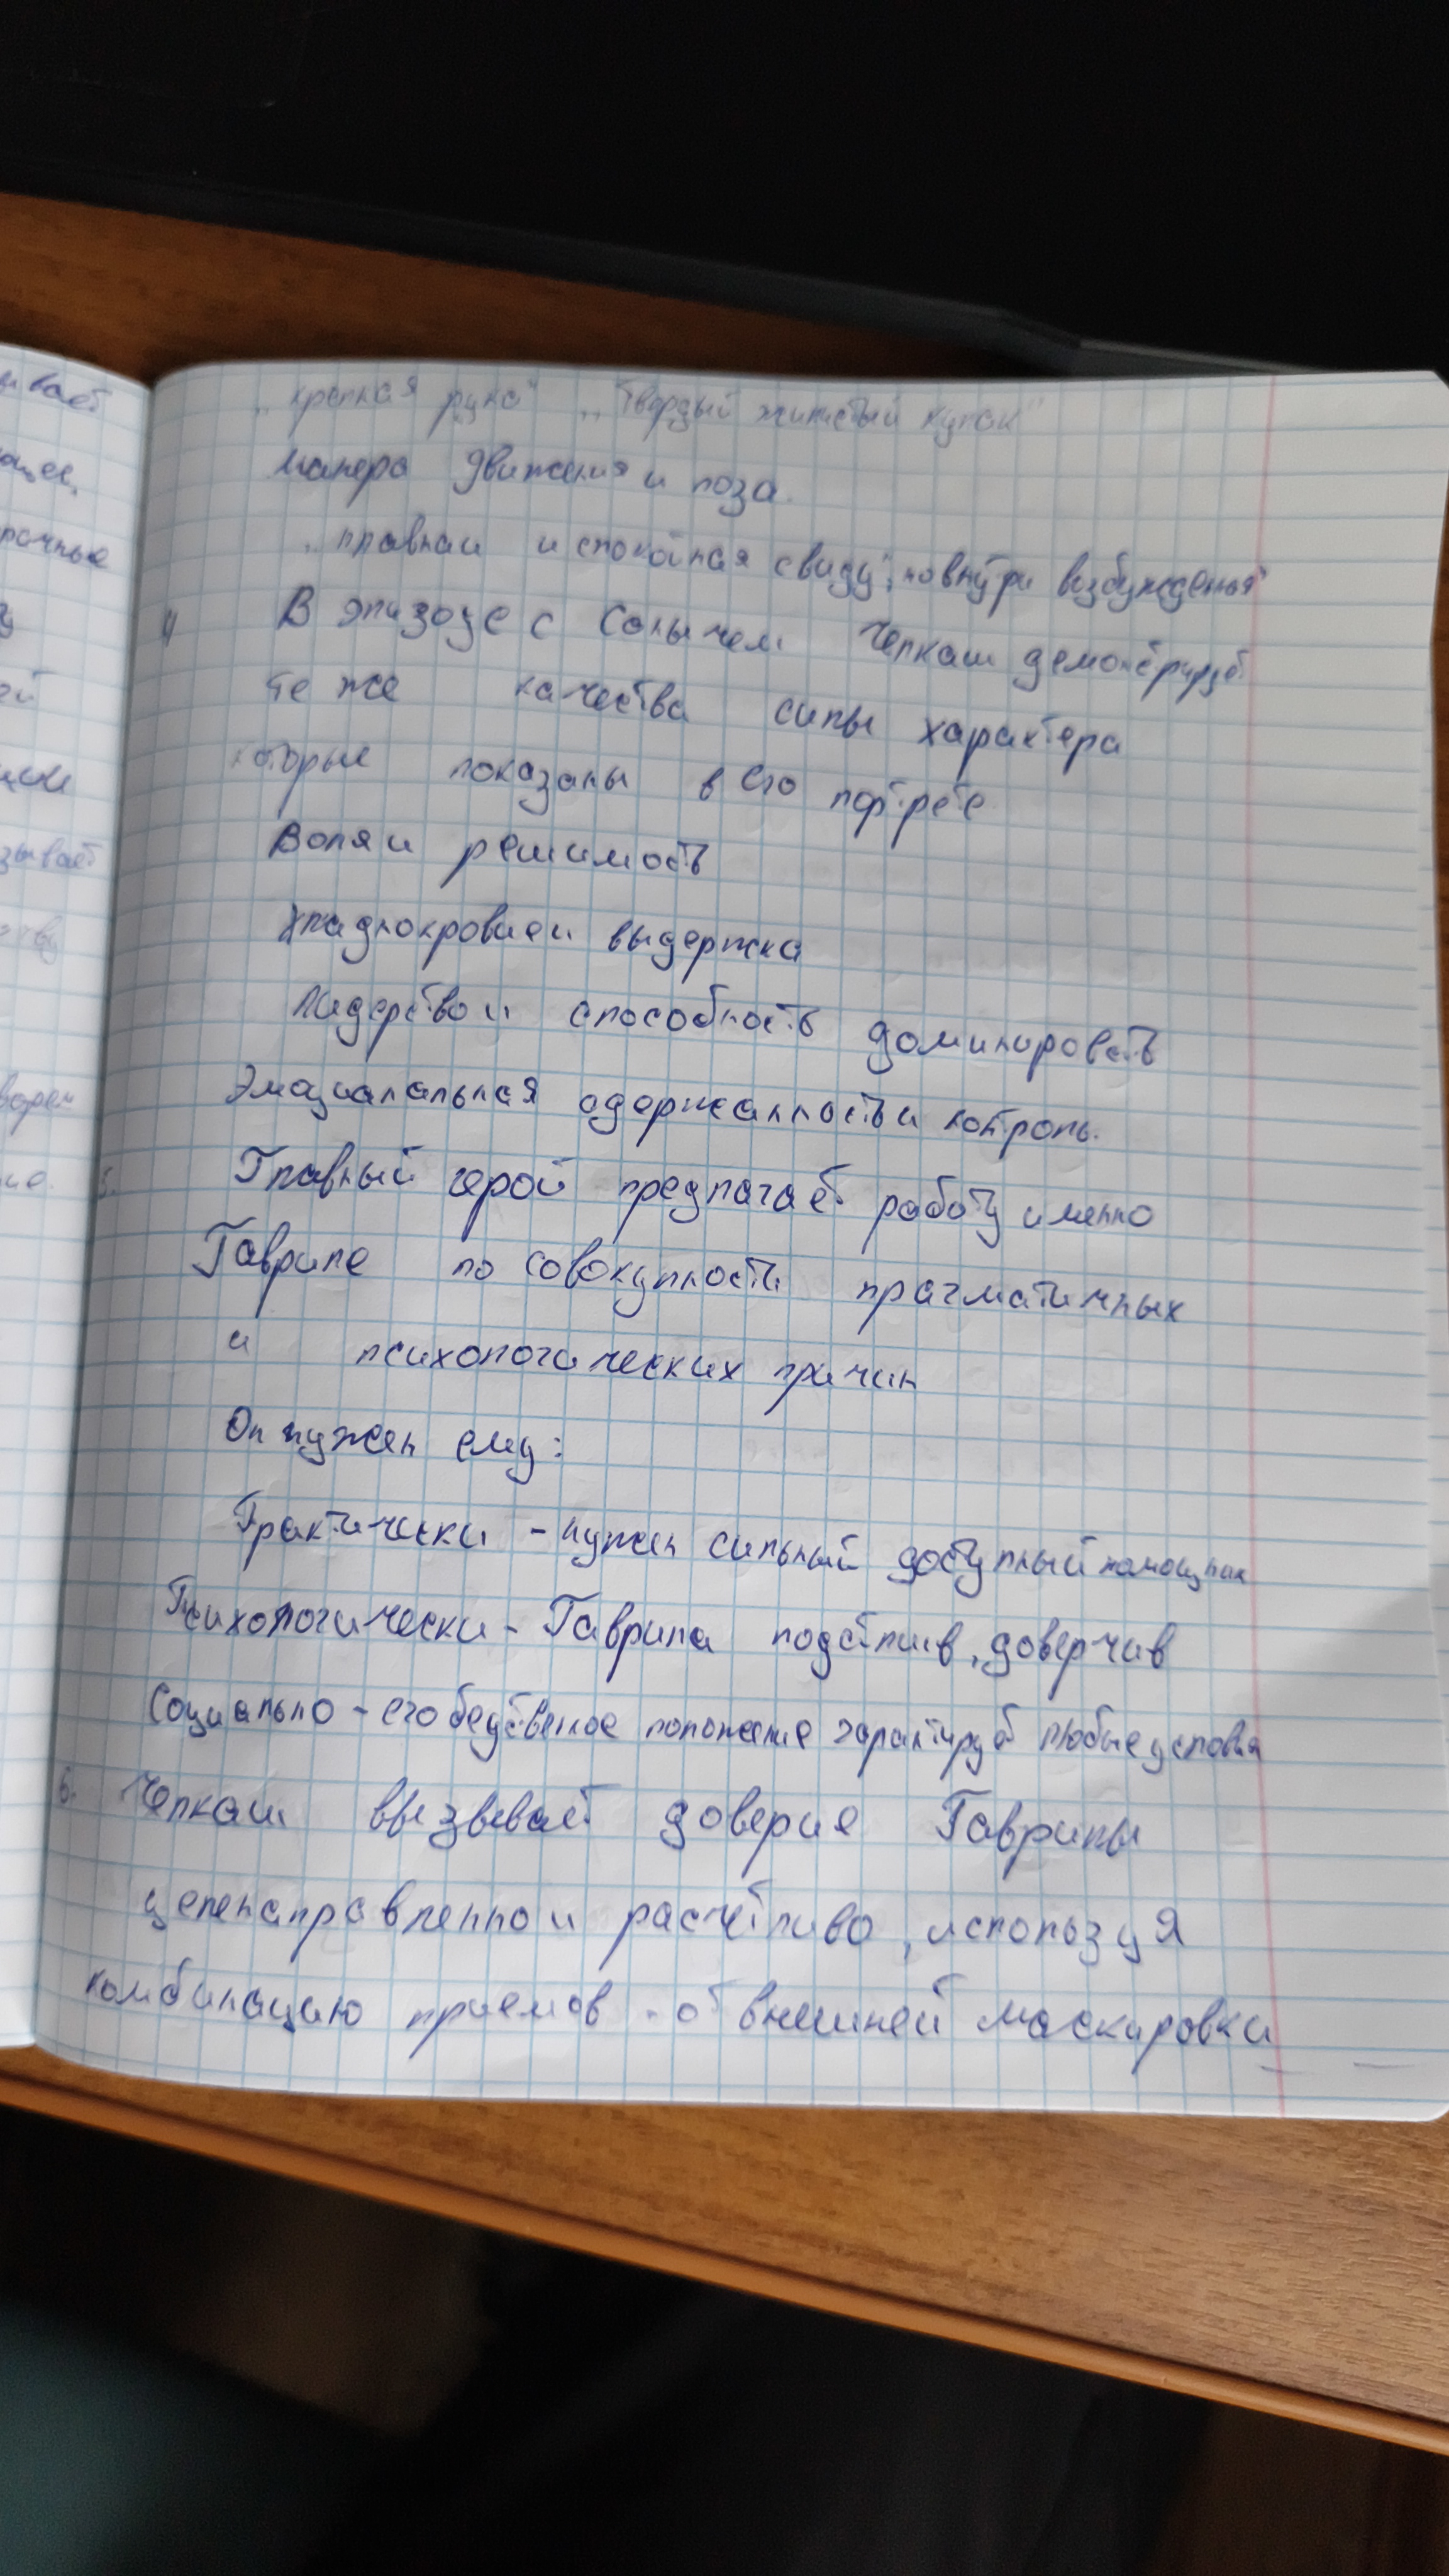 „крепкая рука" „твердый жилистый кулак"
Манера движения и поза.
„плавная и спокойная с виду", но внутри возбужденья"
4 В эпизоде с Семенычем Челкаш
те же качества силы характера
которые показаны в его портрете
Воля и решимость
Хладнокровие и выдержка
Лидерство и способность доминировать
сдержанность и контроль.
5. Главный герой предлагает работу именно
Гавриле по совокупности прагматичных
и психологических причин
Он нужен ему:
Практически - нужен сильный доступный помощник
Психологически - Гаврила доверчив
Социально - его положение любые условия
6. Челкаш вызвевает доверие Гаврилы
целенаправленно и расчётливо, используя
комбинацию приемов - от внешней маскировки
ывает